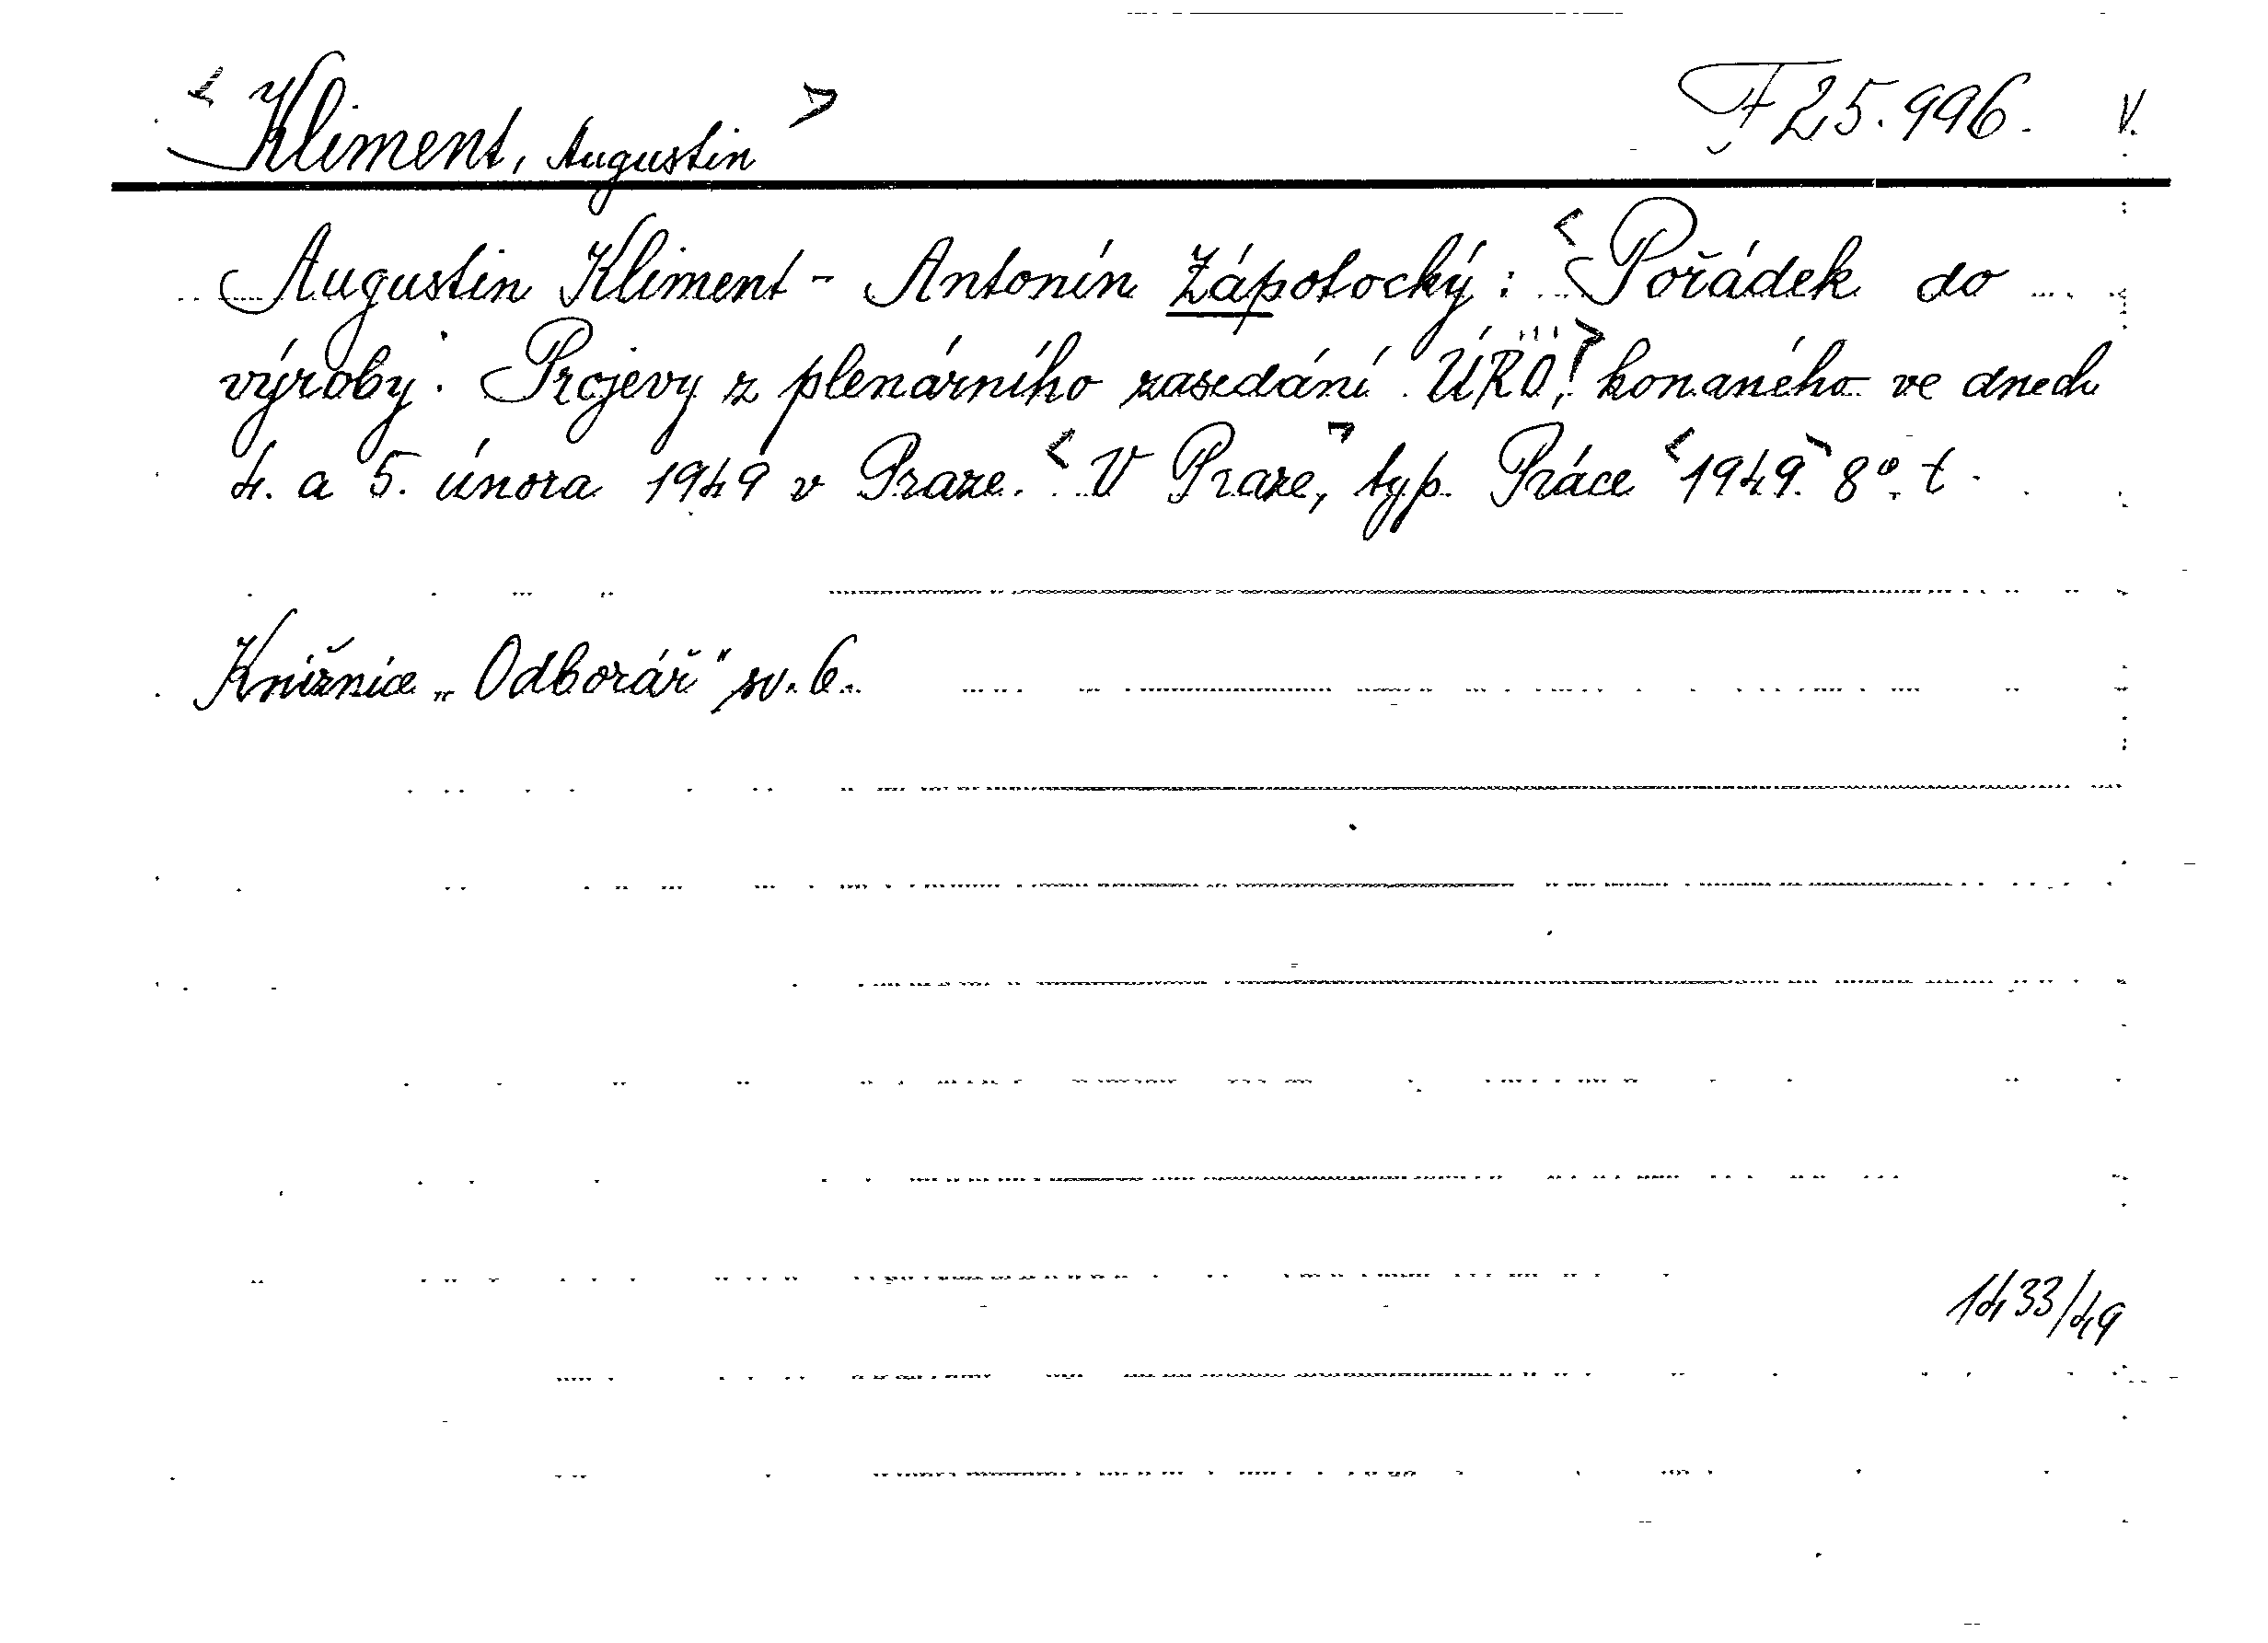 <Kliment, Augustin> F 25.996. V.
Augustin Kliment - Antonín Zápotocký: <Pořádek do
výroby. Projevy z plenárního zasedání ÚRO,> konaného ve dnech
4. a 5. února 1949 v Praze. <V Praze,> typ. Práce <1949> 8°. t.
Knižnice „Odborář" sv. 6.
1433/49